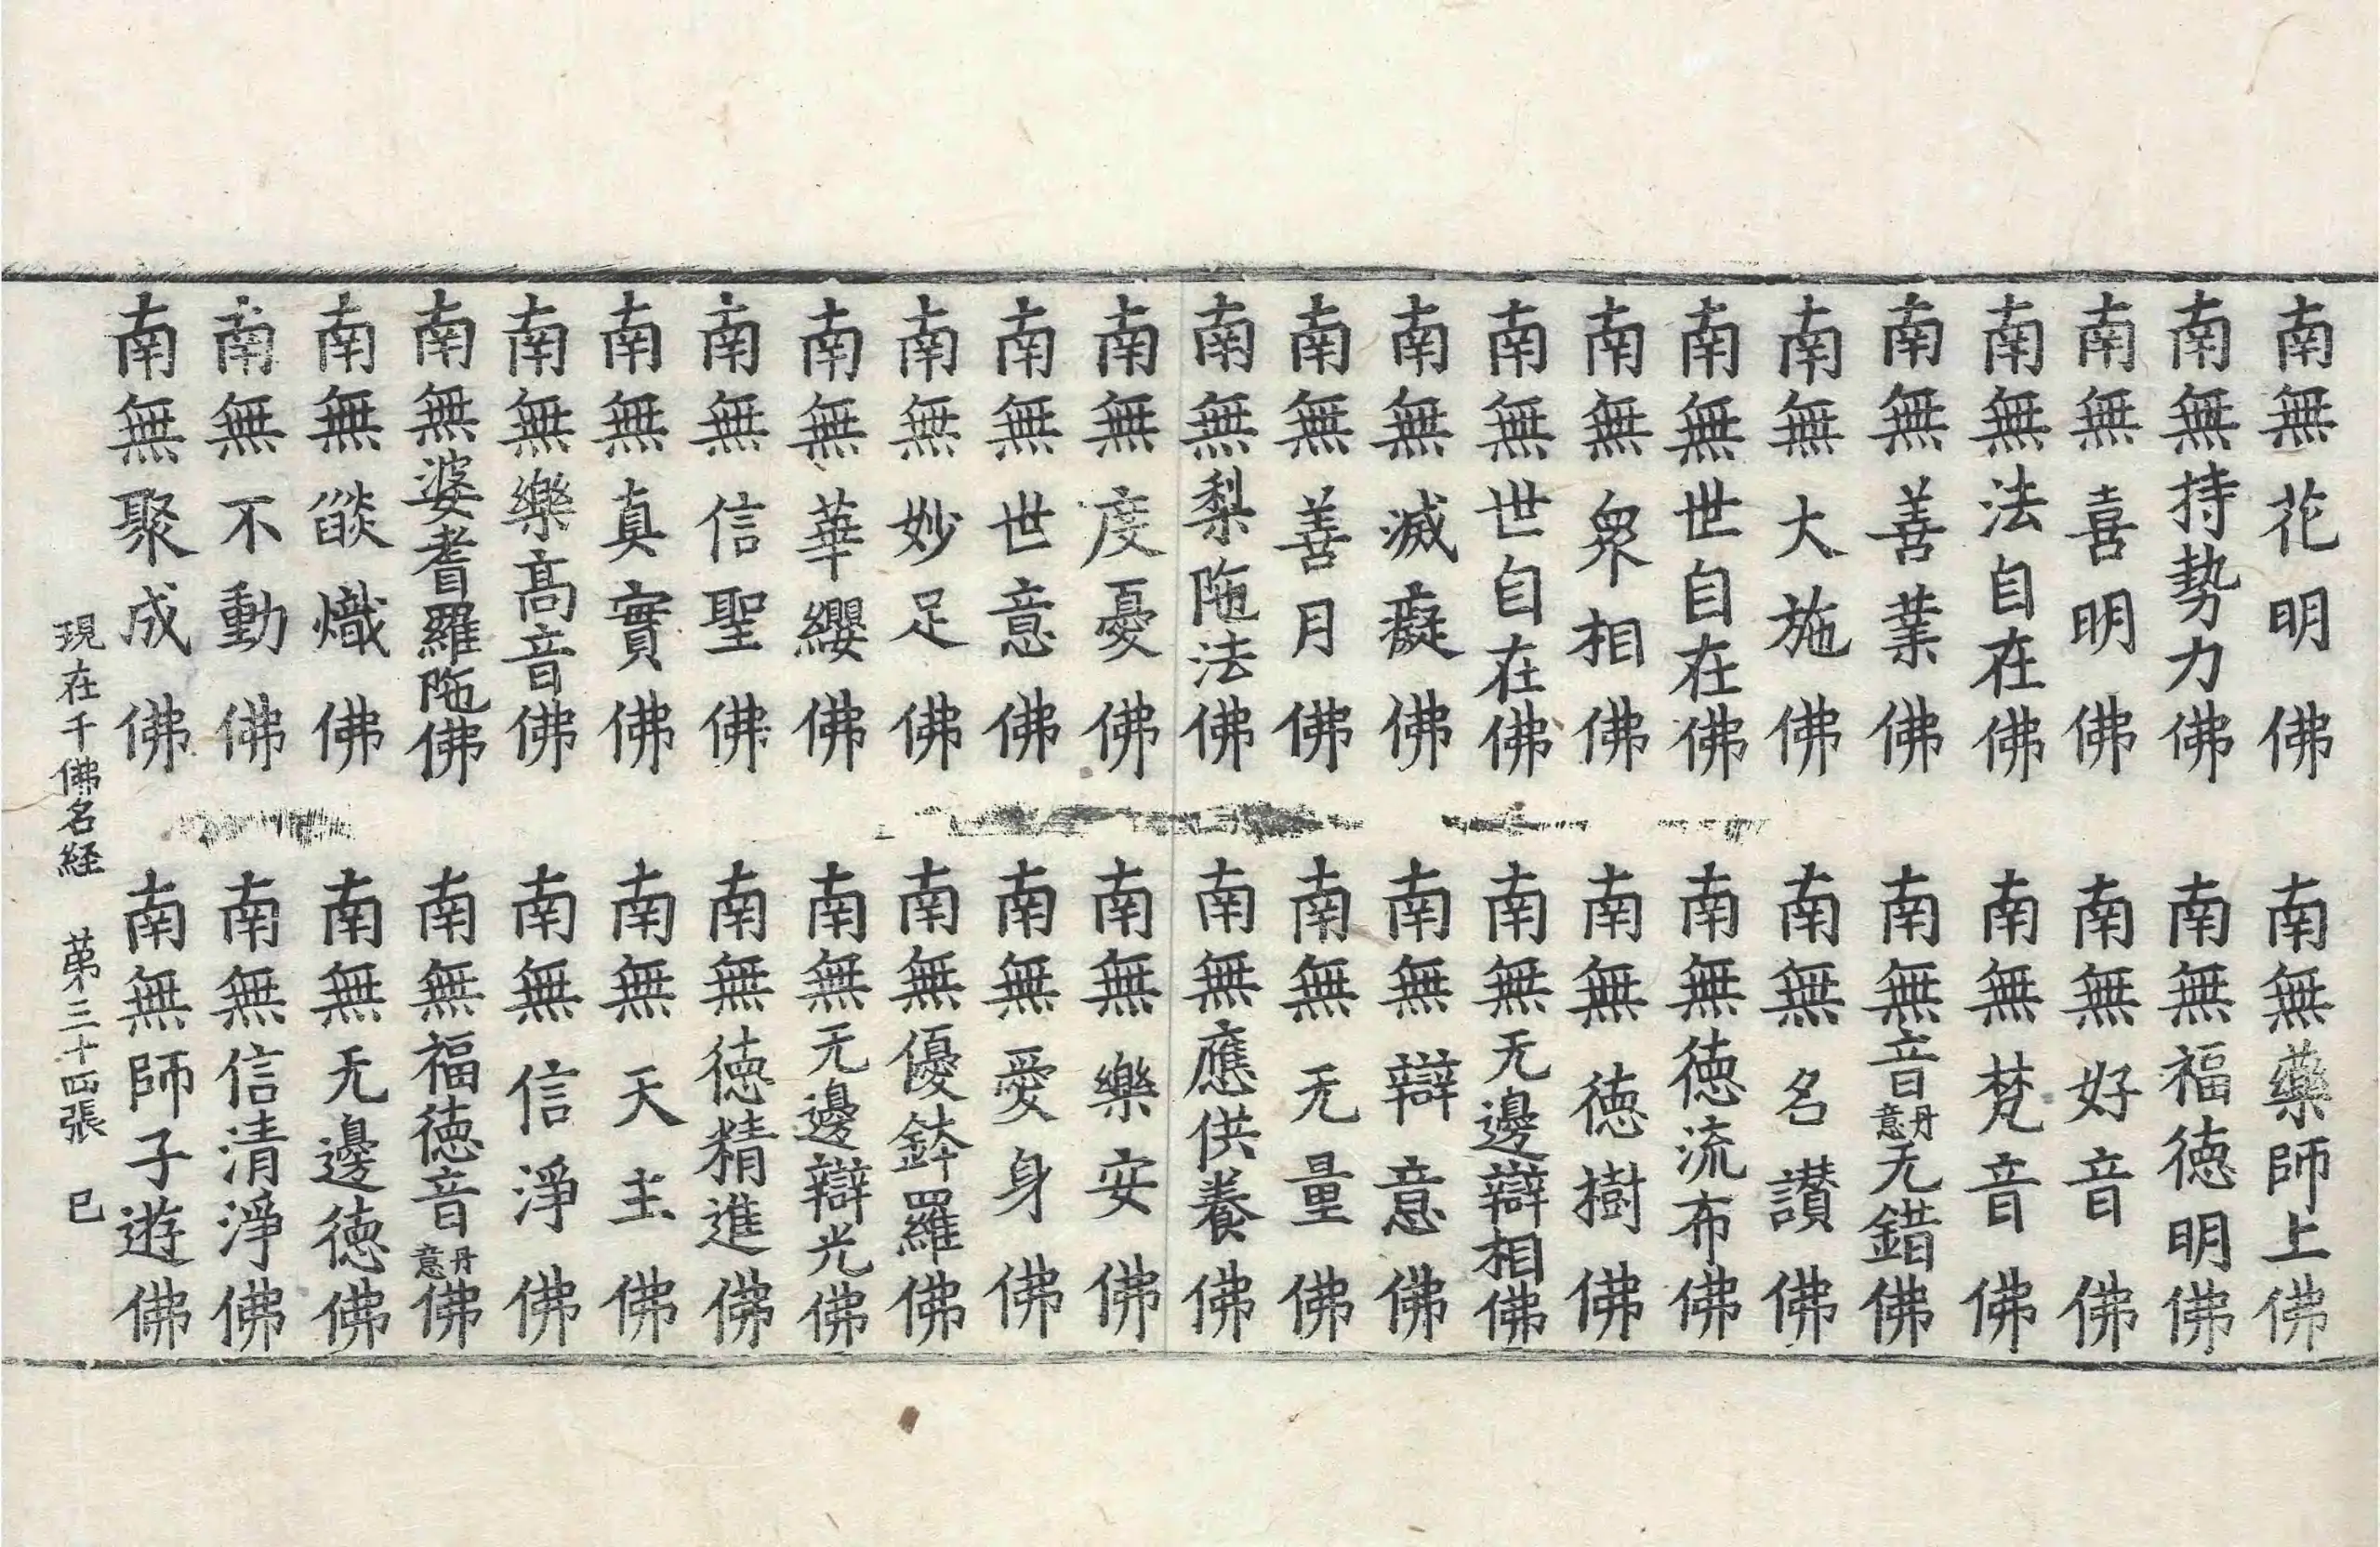 南無花明佛　南無藥師上佛
南無持勢力佛　南無福徳明佛
南無喜明佛　南無好音佛
南無法自在佛　南無梵音佛
南無善業佛　南無音丹意无錯佛
南無大施佛　南無名讃佛
南無世自在佛　南無徳流布佛
南無衆相佛　南無徳樹佛
南無世自在佛　南無无邊辯相佛
南無滅癡佛　南無辯意佛
南無善月佛　南無无量佛
南無梨陁法佛　南無應供養佛
南無度憂佛　南無樂安佛
南無世意佛　南無愛身佛
南無妙足佛　南無優鉢羅佛
南無華纓佛　南無无邊辯光佛
南無信聖佛　南無徳精進佛
南無真實佛　南無天主佛
南無樂髙音佛　南無信淨佛
南無婆耆羅陁佛　南無福徳音丹意佛
南無燄熾佛　南無无邊徳佛
南無不動佛　南無信清淨佛
南無聚成佛　南無師子遊佛
現在千佛名経　苐三十四張　巳